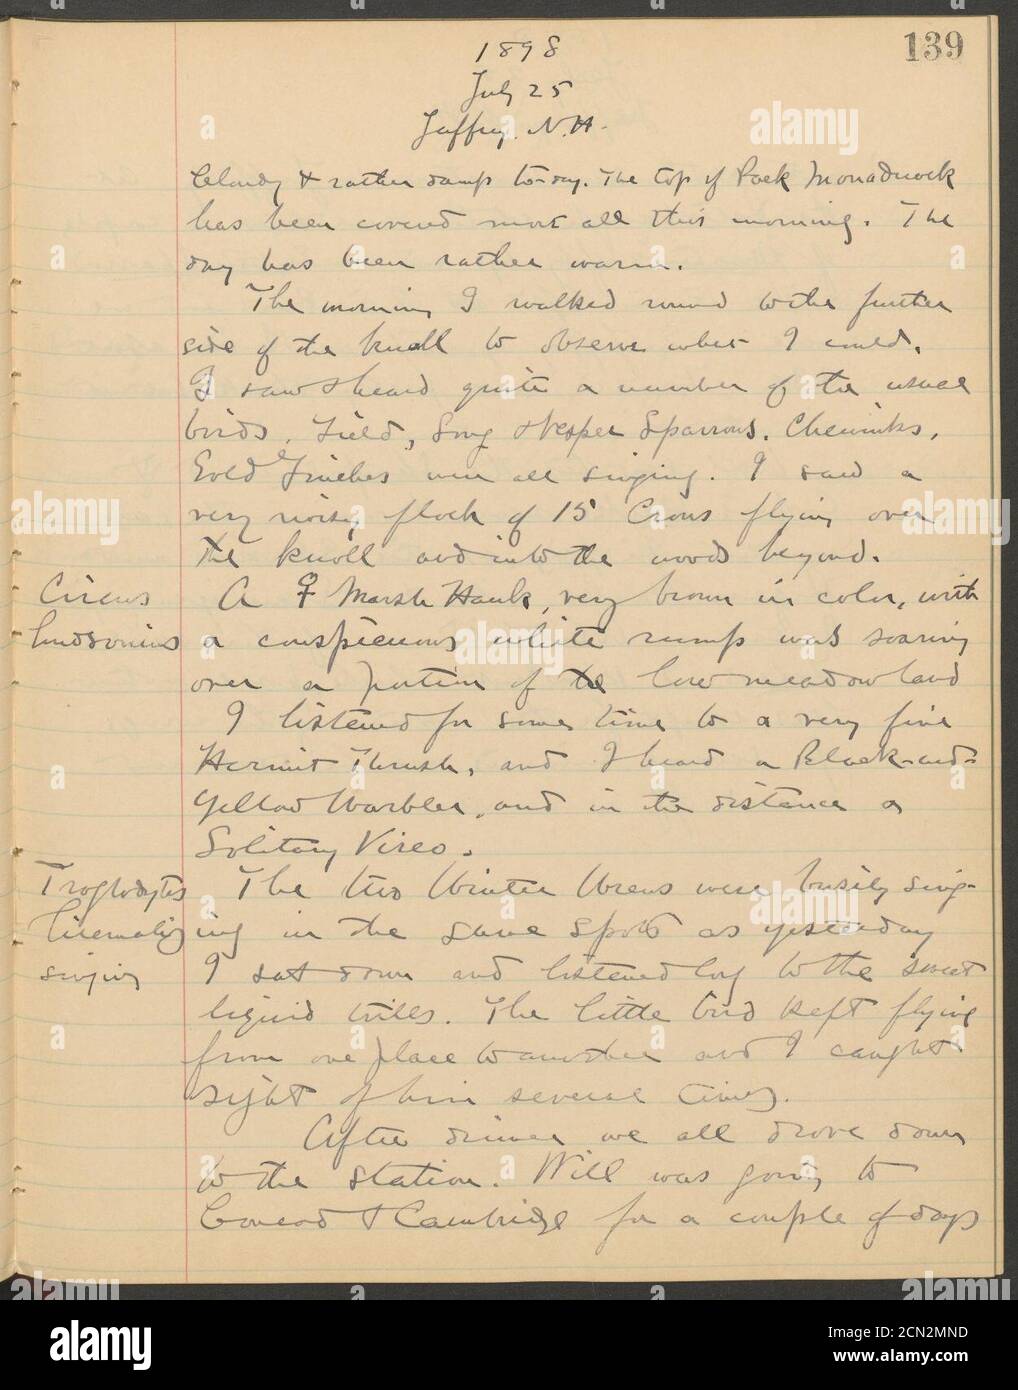 139
1898
July 25
Jaffrey. N.H.
Cloudy & rather damp to-day. The top of Monadnock
has been covered most all this morning. The
day has been rather warm.
The morning I walked round to the further
side of the knoll to observe what I could.
I saw & heard quite a number of the usual
birds. Field, Song & Vesper Sparrows. Chewinks,
Gold Finches were all singing. I saw a
very noisy flock of 15 Crows flying over
the knoll and into the woods beyond.
Circus
A ♀ Marsh Hawk, very brown in color, with
hudsonius
a conspicuous white rump was soaring
over a portion of the low meadow land
I listened for some time to a very fine
Hermit Thrush, and I heard a Black-and-
Yellow Warbler, and in the distance a
Solitary Vireo.
Troglodytes
The two Winter Wrens were busily sing-
hiemalis
ing in the same spots as yesterday
singing
I sat down and listened long to the sweet
liquid trills. The little bird kept flying
from one place to another and I caught
sight of him several times.
After dinner we all drove down
to the station. Will was going to
Concord & Cambridge for a couple of days
alamy
Image ID: 2CN2MND
www.alamy.com